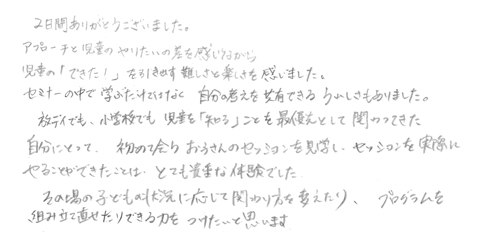 2日間ありがとうございました。
アプローチと児童のやりたいの差を感じながら
児童の「できた!」を引き出す難しさと楽しさを感じました。
セミナーの中で学ぶだけではなく 自分の考えを共有できるうれしさもありました。
放デイでも、小学校でも児童を「知る」ことを最優先として関わってきた
自分にとって、初めて会うお子さんのセッションを見学し、セッションを実際に
やることができたことは、とても貴重な体験でした
その場の子どもの状況に応じて関わり方を考えたり、プログラムを
組み立て直せたりできる力をつけたいと思います